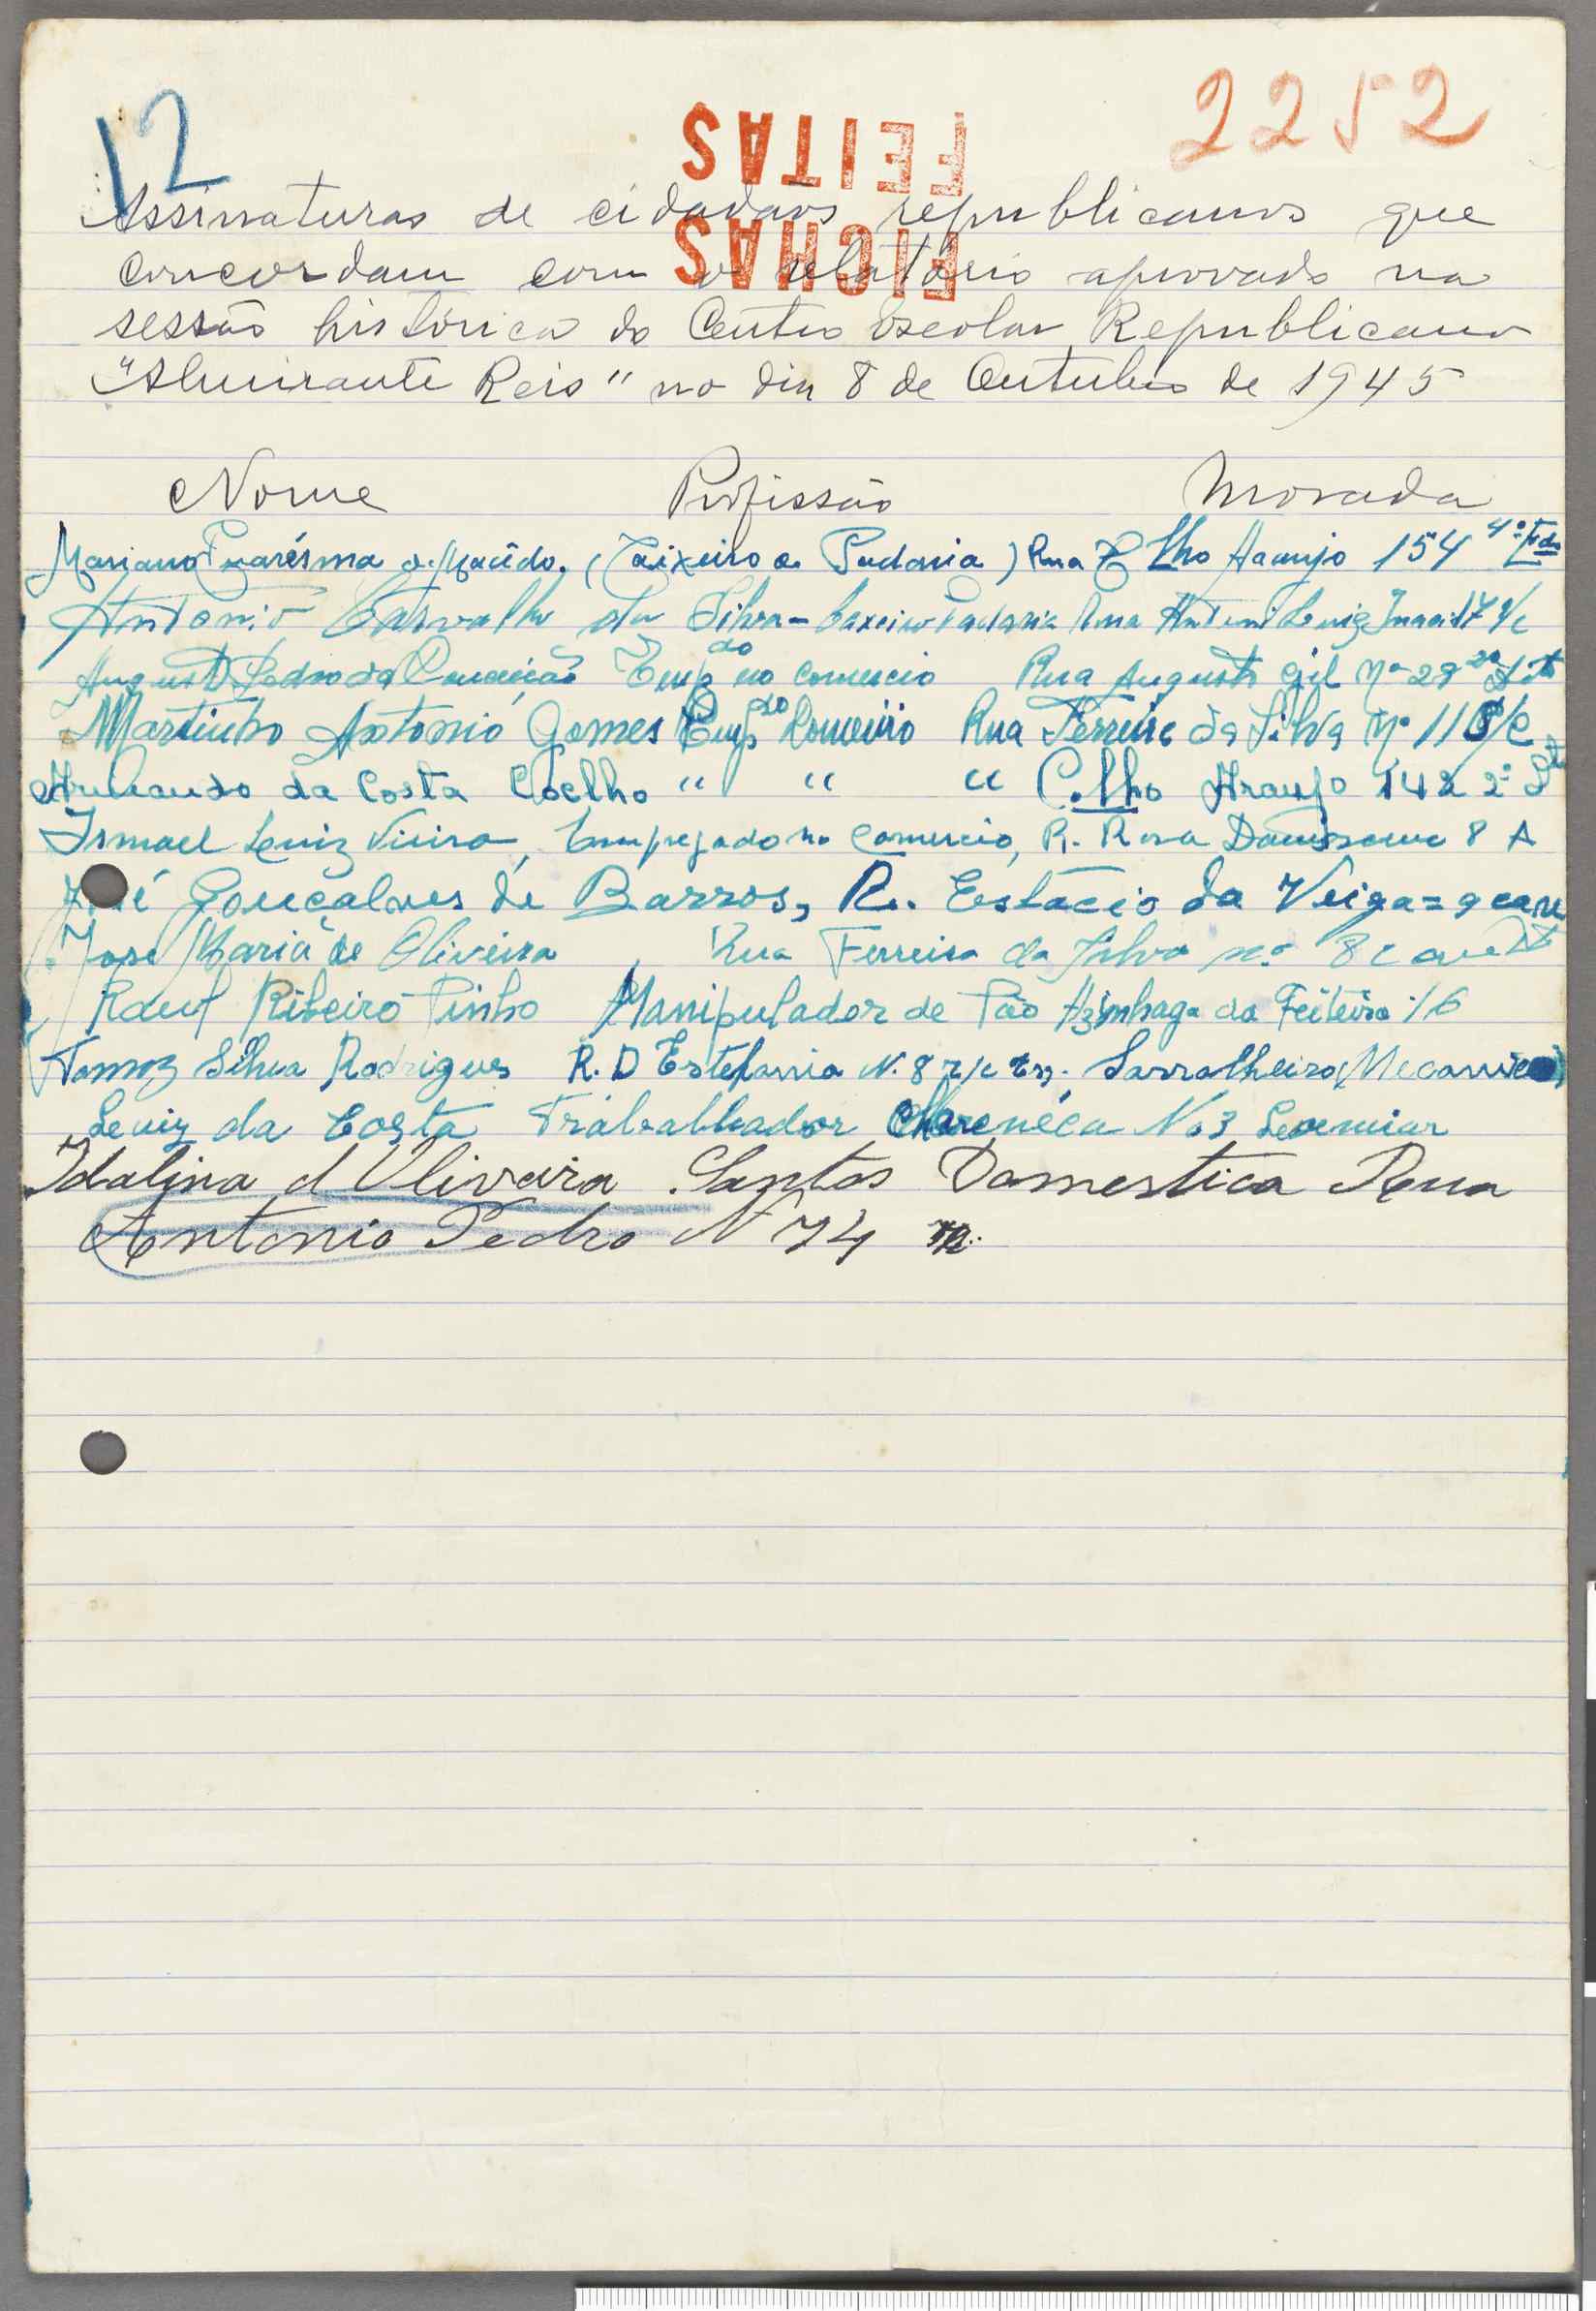 12
2252
FICHAS
FEITAS
Assinaturas de cidadãos republicanos que
concordam com o relatório aprovado na
sessão histórica do Centro Escolar Republicano
"Almirante Reis" no dia 8 de Outubro de 1945
Nome Profissão Morada
Mariano Quarésma de Macêdo. (Caixeiro de Padaria) Rua Clho Araujo 154 4º
Antonio Carvalho da Silva - Caxeiro Padaria Rua Antoni Luiz Inacio 17 r/c
Augusto Pedro da Conceição Empdo no comercio Rua Augusto Gil Nº 29 2º Dto
Martinho Antonió Gomes Empdo Comercio Rua Ferreira da Silva Nº 11 r/c
Armando da Costa Coelho " " " C.lho Araujo 142 2º
Ismael Luiz Vieira, Empregado no Comercio, R. Rosa Damasceno 8 A
José Gonçalves de Barros, R. Estácio da Veiga = 9 cave
José Maria de Oliveira, Rua Ferreira da Silva nº 8 cave Dt
Raul Ribeiro Pinho Manipulador de Pão Azinhaga da Feiteira 16
Tomaz Silva Rodrigues R. D Estefania N. 8 r/c Esq. Sarralheiro (Mecanico)
Luiz da Costa Trabalhador Charneca No 3 Lumiar
Idalina d Oliveira Santos Domestica Rua
Antonio Pedro N 74